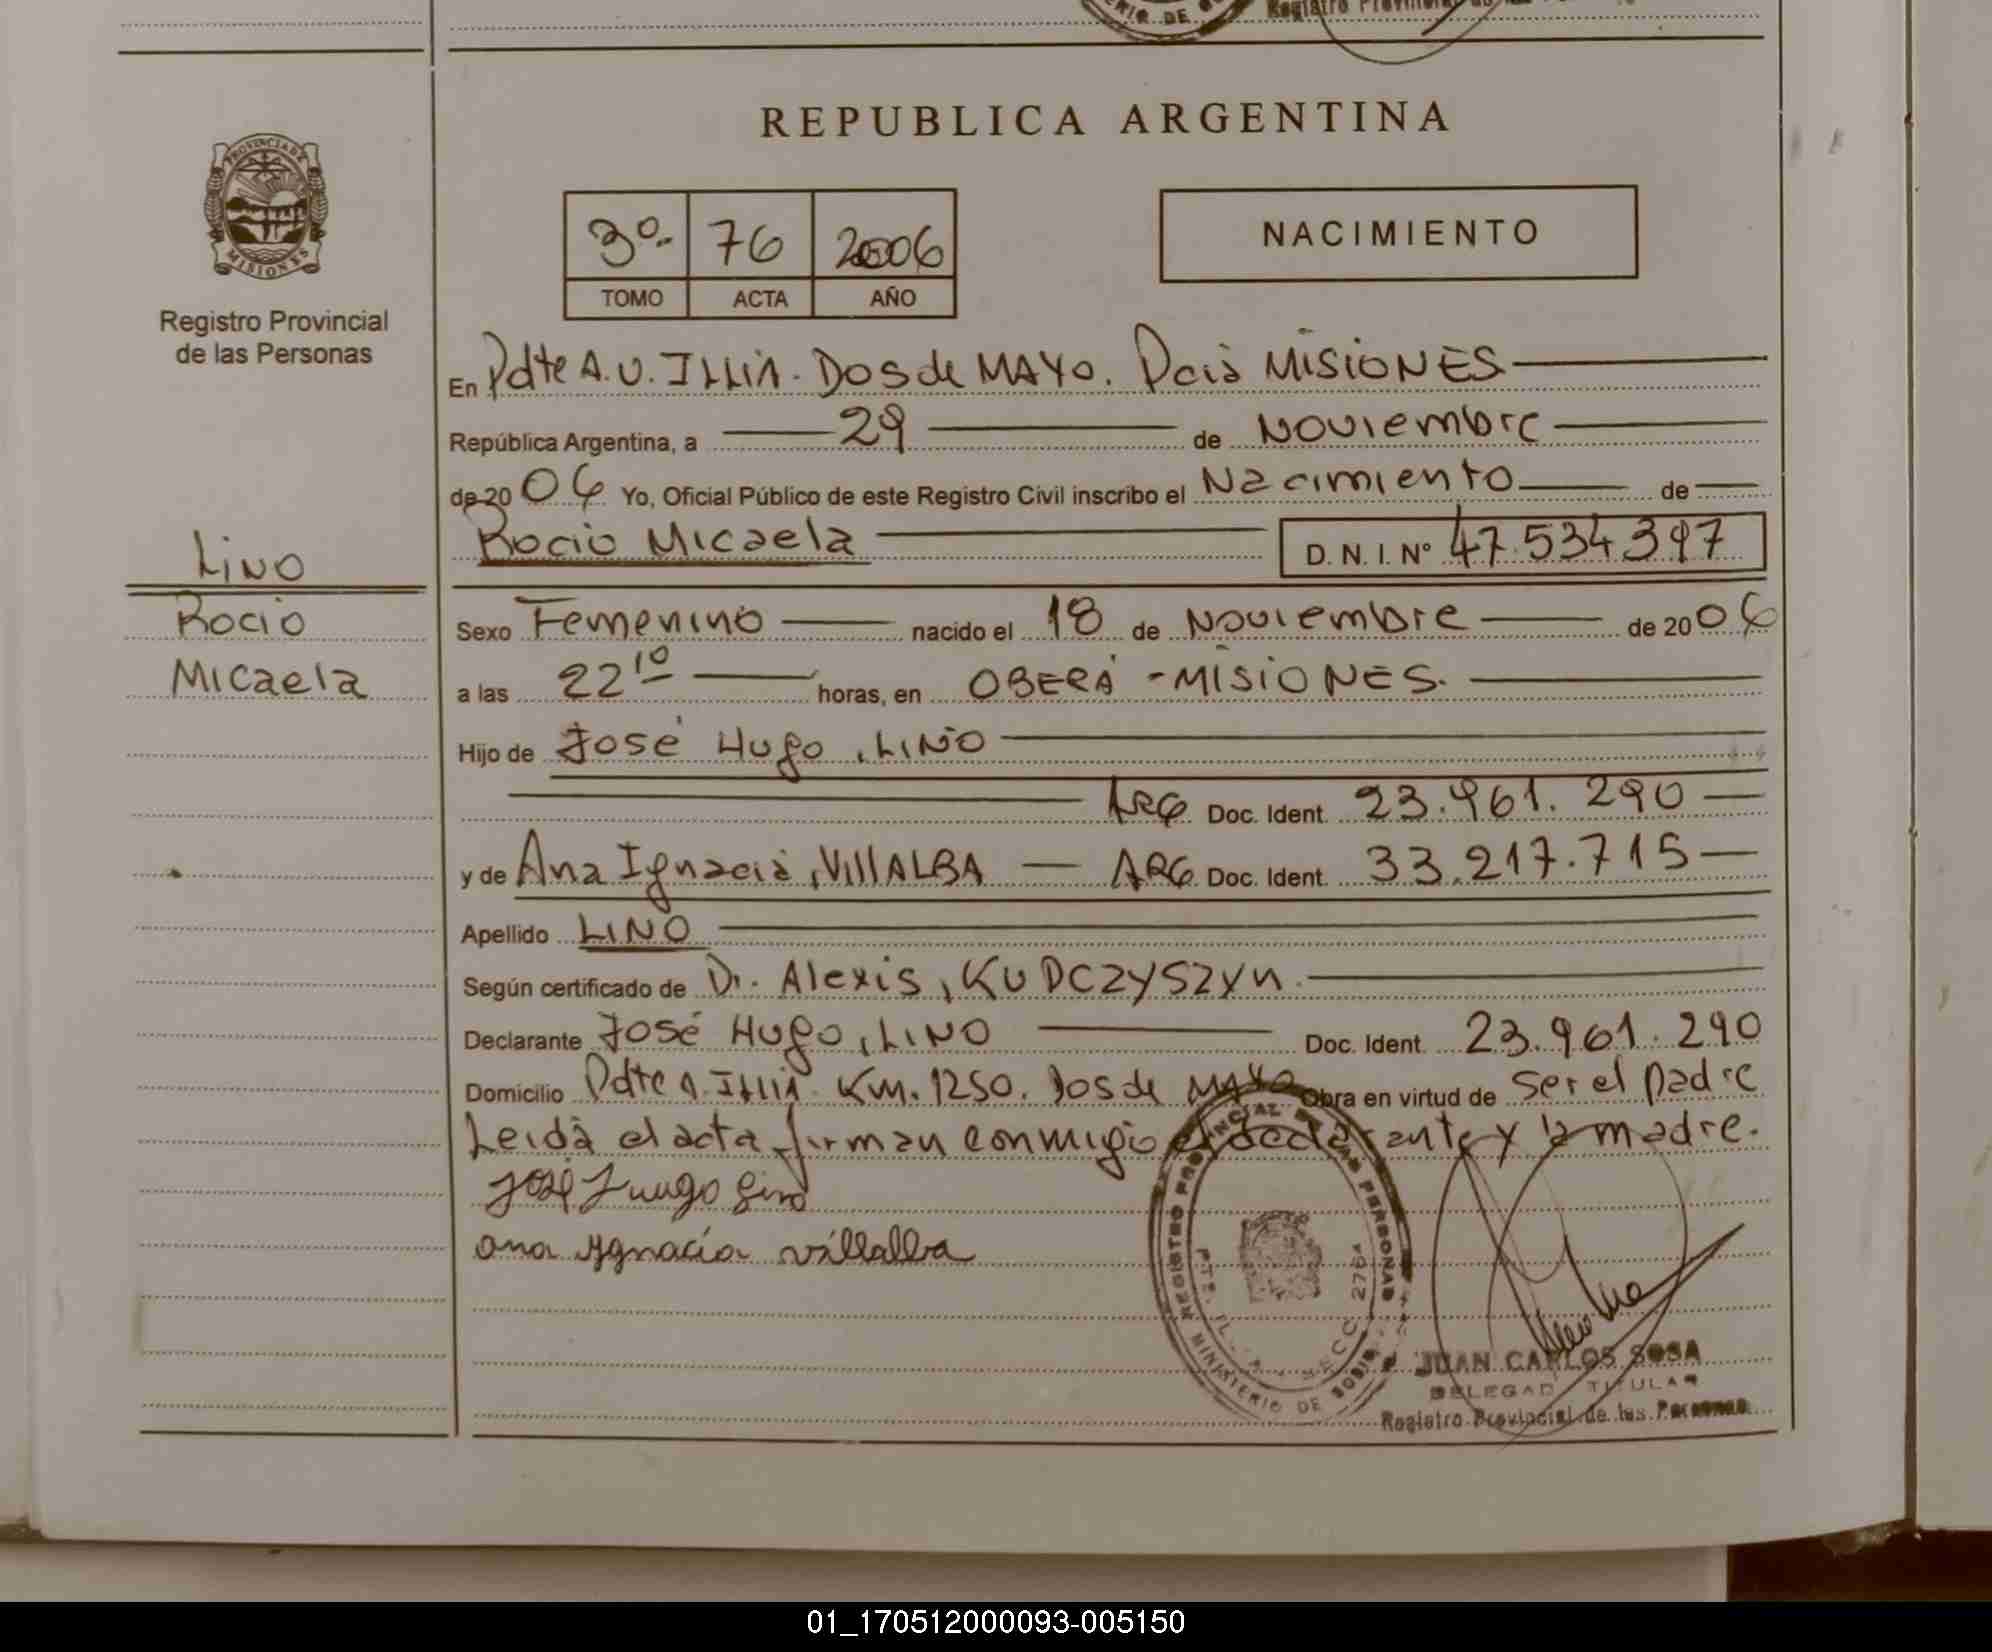 REPUBLICA ARGENTINA
PROVINCIA DE
MISIONES
Registro Provincial
de las Personas
3º 76 2006
TOMO ACTA AÑO
NACIMIENTO
En Pdte A.U. ILLIA. DOS de MAYO. Pcia MISIONES
República Argentina, a 29 de Noviembre
de 20 06 Yo, Oficial Público de este Registro Civil inscribo el Nacimiento de
Rocio Micaela D. N. I. Nº 47.534.397
LINO
Rocio
Micaela
Sexo Femenino nacido el 18 de Noviembre de 20 06
a las 22 10 horas, en OBERÁ - MISIONES.
Hijo de José Hugo, LINO
ARG Doc. Ident. 23.961.290
y de Ana Ignacia, VIllALBA ARG. Doc. Ident. 33.217.715
Apellido LINO
Según certificado de Dr. Alexis, KUDCZYSZYN.
Declarante José Hugo, LINO Doc. Ident. 23.961.290
Domicilio Pdte A. ILLIA. Km. 1250. Dos de MAYO Obra en virtud de ser el padre
Leida el acta firman conmigo el declarante y la madre.
ana Ygnacia villalba
REGISTRO PROVINCIAL DE LAS PERSONAS
MINISTERIO DE
JUAN CARLOS SOSA
DELEGADO TITULAR
Registro Provincial de las Personas
01_170512000093-005150